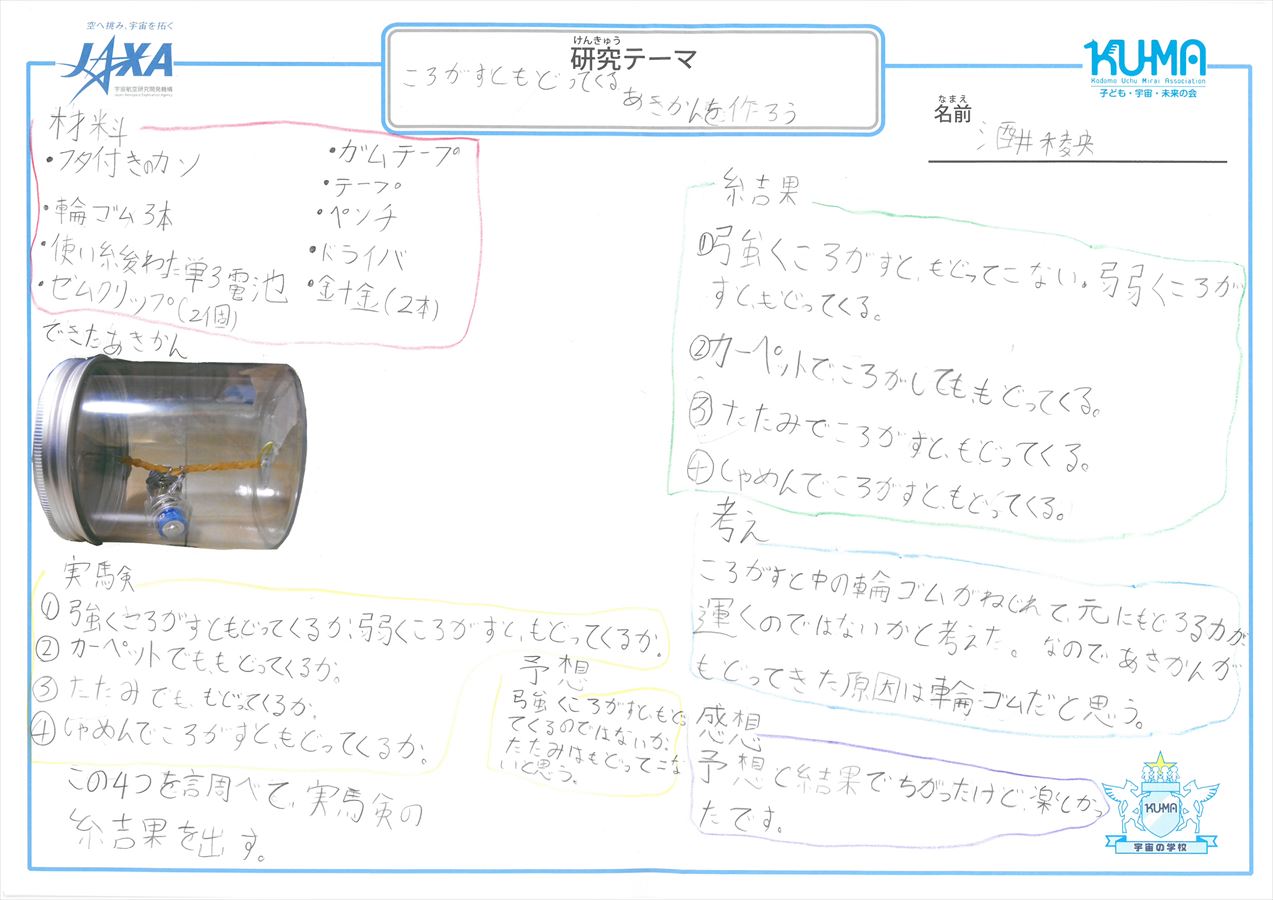 空へ挑み、宇宙を拓く
JAXA
宇宙航空研究開発機構
Japan Aerospace Exploration Agency
けんきゅう
研究テーマ
ころがすともどってくる
あきかんを作ろう
KU-MA
Kodomo Uchu Mirai Association
子ども・宇宙・未来の会
なまえ
名前
酒井稜央
材料
・フタ付きのカン
・輪ゴム3本
・使い終わった単3電池
・ゼムクリップ(2個)
・ガムテープ
・テープ
・ペンチ
・ドライバ
・針金(2本)
できたあきかん
実験
①強くころがすともどってくるか、弱くころがすと、もどってくるか。
②カーペットでも、もどってくるか。
③たたみでも、もどってくるか。
④しゃめんでころがすと、もどってくるか。
この4つを調べて、実験の
結果を出す。
予想
強くころがすと、もど
ってくるのではないか。
たたみはもどってこな
いと思う。
結果
①強くころがすと、もどってこない。弱くころが
すと、もどってくる。
②カーペットで、ころがしても、もどってくる。
③たたみでころがすと、もどってくる。
④しゃめんでころがすと、もどってくる。
考え
ころがすと中の輪ゴムがねじれて、元にもどろる力が
運くのではないかと考えた。なのであきかんが
もどってきた原因は輪ゴムだと思う。
感想
予想と結果でちがったけど、楽しかっ
たです。
KU-MA
宇宙の学校